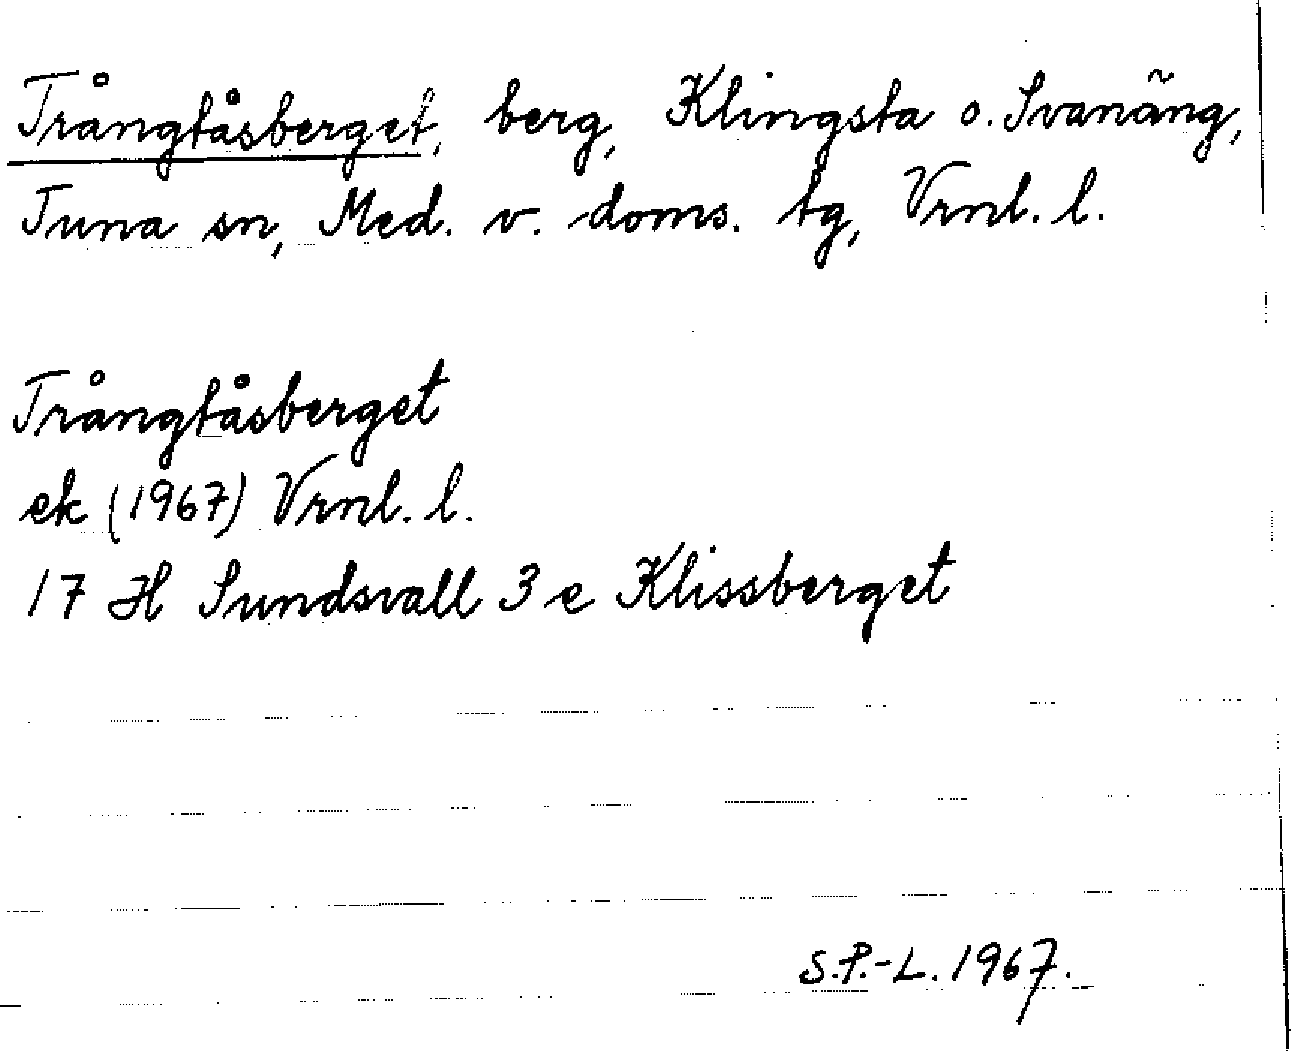 Trångtåsberget, berg, Klingsta o. Svanäng,
Tuna sn, Med. v. doms. tg, Vrnl. l.
Trångtåsberget
ek (1967) Vrnl. l.
17 H Sundsvall 3 e Klissberget
S.P.-L. 1967.